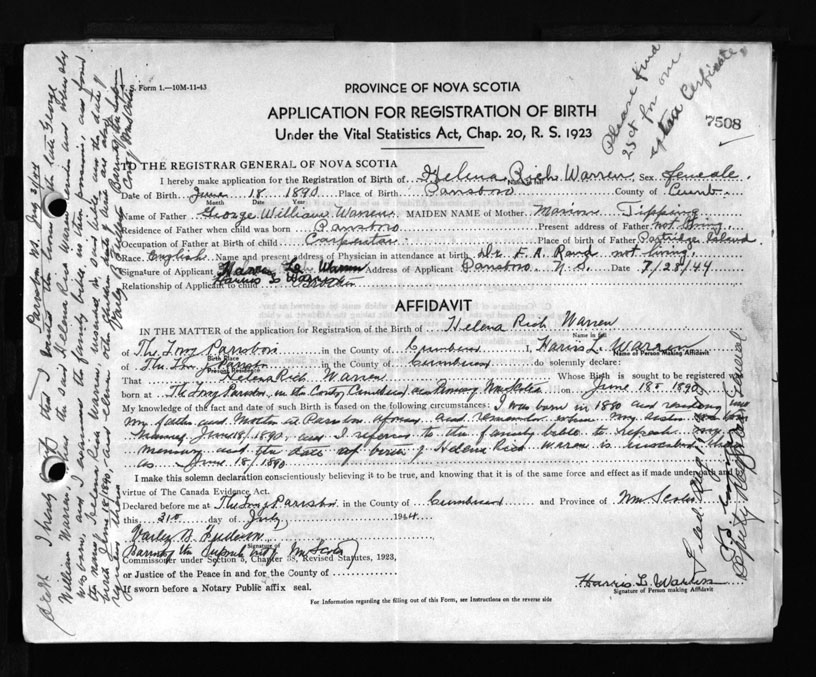 V. S. Form 1.—10M-11-43
PROVINCE OF NOVA SCOTIA
APPLICATION FOR REGISTRATION OF BIRTH
Under the Vital Statistics Act, Chap. 20, R. S. 1923
Please find
25¢ for one
extra Certificate.
7508
TO THE REGISTRAR GENERAL OF NOVA SCOTIA
I hereby make application for the Registration of Birth of Helena Rich Warren Sex female
Name in full
Date of Birth June 18 1890 Place of Birth Parrsboro County of Cumb.
Month Date Year
Name of Father George William Warren MAIDEN NAME of Mother Tipping
Residence of Father when child was born Parrsboro Present address of Father not living
Occupation of Father at Birth of child Carpenter Place of birth of Father Partridge Island
Race. English Name and present address of Physician in attendance at birth. Dr. F. A. Rand not living.
Signature of Applicant Harris L. Warren Address of Applicant Parrsboro N. S. Date 7/28/44
Harris L. Warren
Relationship of Applicant to child Brother
AFFIDAVIT
IN THE MATTER of the application for Registration of the Birth of Helena Rich Warren
Name in full
of Parrsboro in the County of Cumberland I, Harris L. Warren
Birth Place Name of Person Making Affidavit
of in the County of Cumberland do solemnly declare:
Present Residence
That Helena Rich Warren Whose Birth is sought to be registered was
born at The Town Parrsboro, in the County Cumberland and Province Nova Scotia on June 18th 1890
My knowledge of the fact and date of such Birth is based on the following circumstances: I was born in 1880 and residing with
my father and mother at Parrsboro and remember when my sister was born
June 18/1890, and I referred to the family bible to refresh my
memory and the date of birth of Helena Rich Warren is inscribed
as June 18/1890
I make this solemn declaration conscientiously believing it to be true, and knowing that it is of the same force and effect as if made under oath and by
virtue of The Canada Evidence Act.
Declared before me at The Town Parrsboro in the County of Cumberland and Province of Nova Scotia
this 31st day of July 1944
Signature of
Barrister of the Supreme Court of Nova Scotia
Commissioner under Section 5, Chapter 38, Revised Statutes, 1923,
or Justice of the Peace in and for the County of
If sworn before a Notary Public affix seal.
Harris L. Warren
Signature of Person making Affidavit
For Information regarding the filling out of this Form, see Instructions on the reverse side
Parrsboro NS. July 31/44
I hereby that I the home of the late George
William Warren, when the said Helena Rich Warren resided and when she
was born, and I examined the family bible in their possession, and found
the name Helena Rich Warren, in said bible and the date of
birth June 18/1890, and
Barrister of the Supreme
Court Nova Scotia
Deputy Registrar General